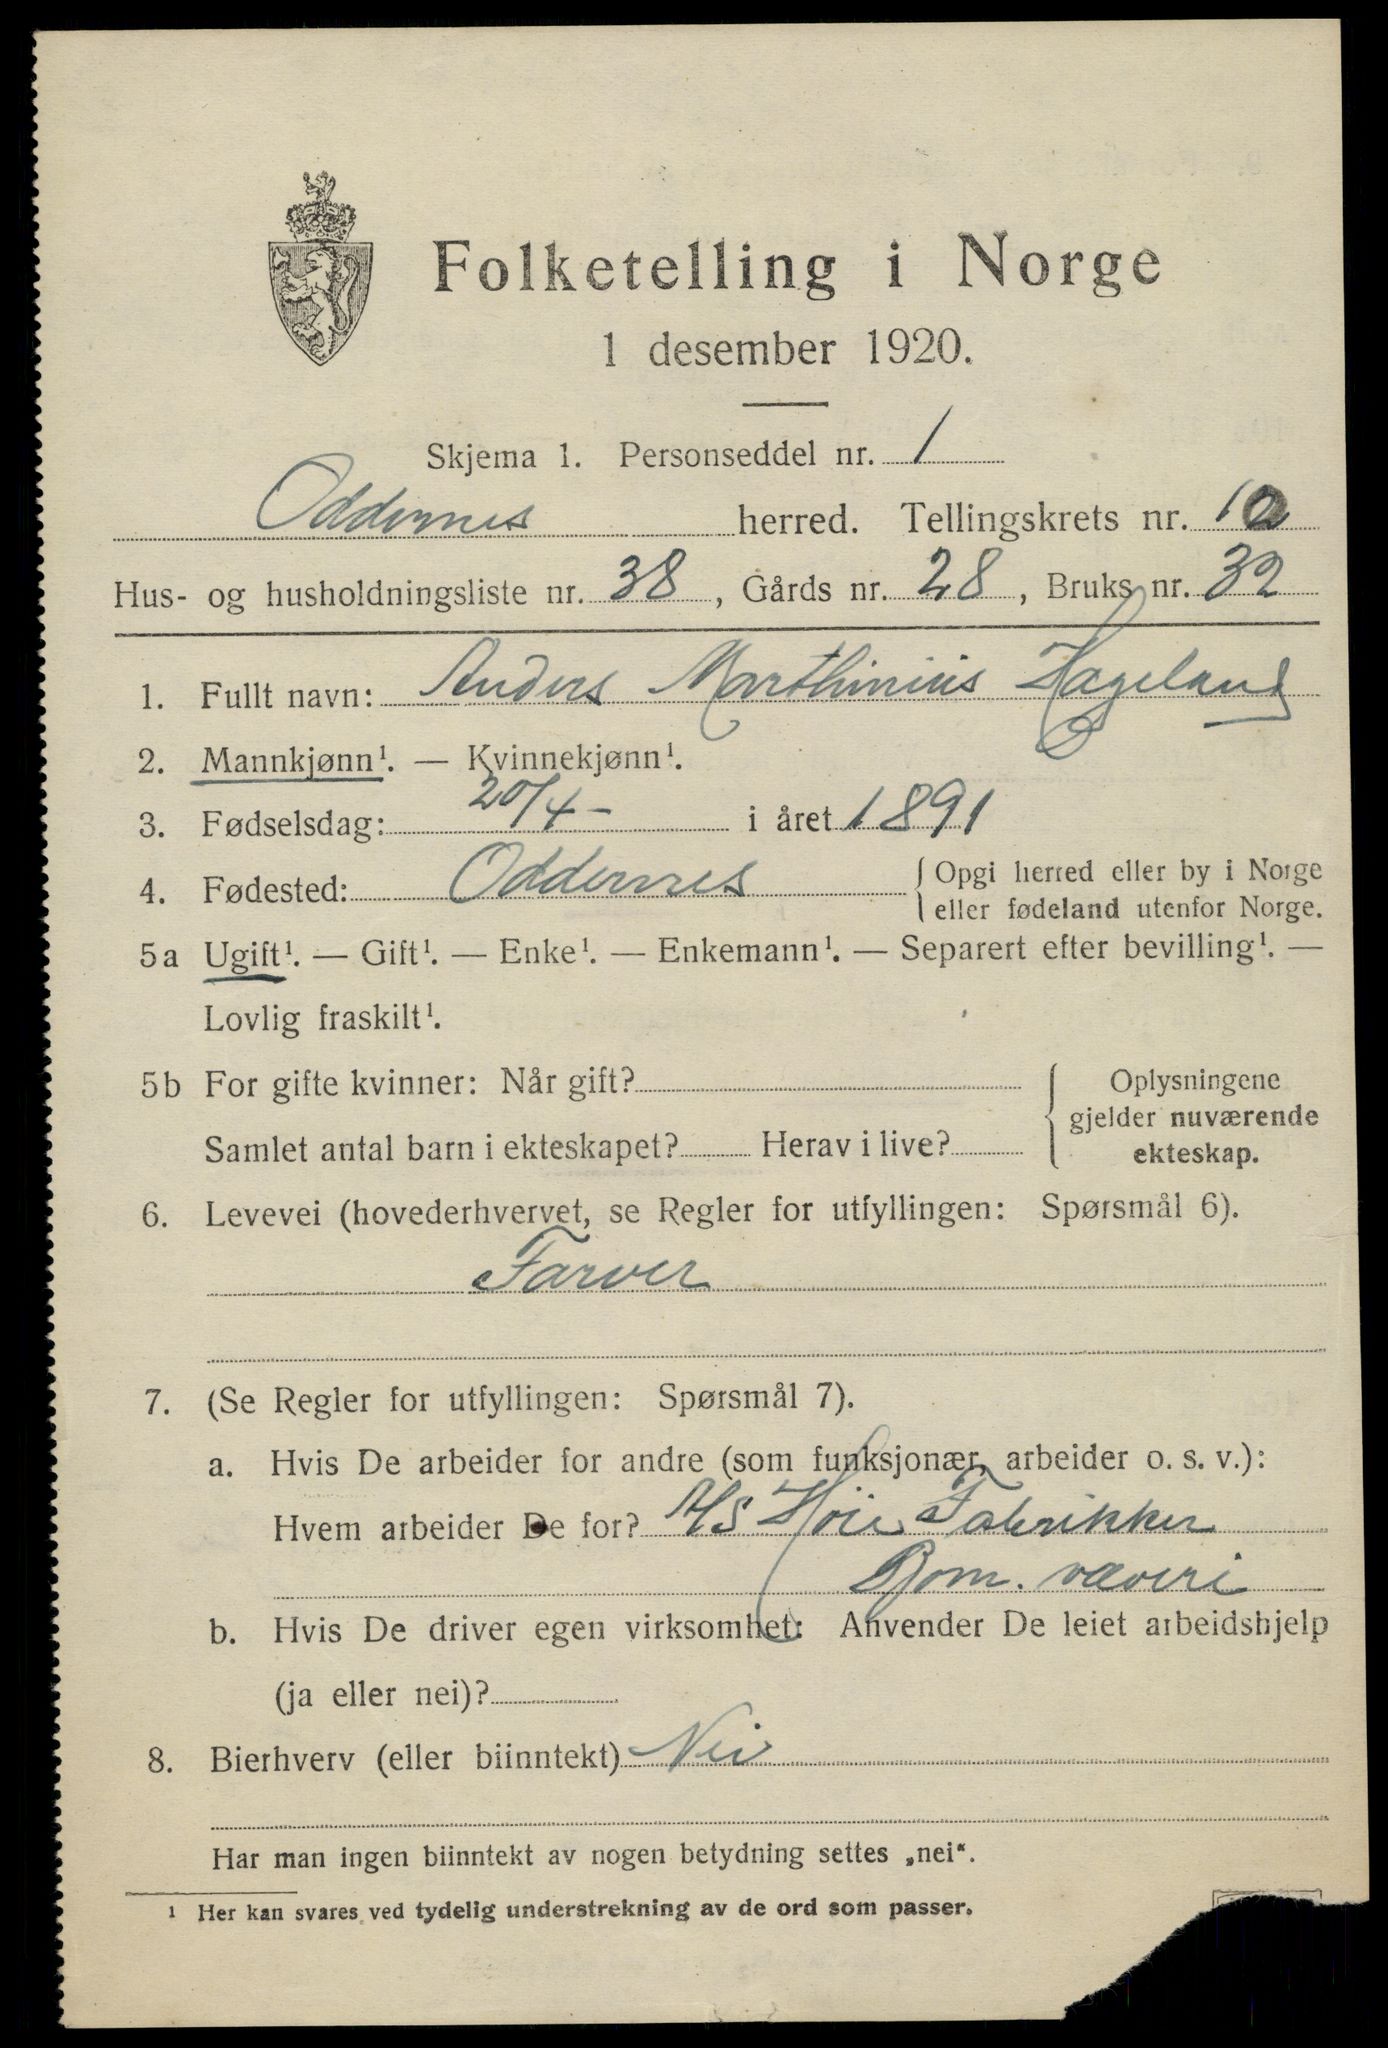 Folketelling i Norge
1 desember 1920.
Skjema 1. Personseddel nr. 1
Oddernes herred. Tellingskrets nr. 10
Hus- og husholdningsliste nr. 38, Gårds nr. 28, Bruks nr. 32
1. Fullt navn: Anders Marthinius Hægeland
2. Mannkjønn¹. — Kvinnekjønn¹.
3. Fødselsdag: 20/4 - i året 1891
4. Fødested: Oddernes {Opgi herred eller by i Norge
eller fødeland utenfor Norge.
5a Ugift¹. — Gift¹. — Enke¹. — Enkemann¹. — Separert efter bevilling¹. —
Lovlig fraskilt¹.
5b For gifte kvinner: Når gift? { Oplysningene
gjelder nuværende
Samlet antal barn i ekteskapet? Herav i live? ekteskap.
6. Levevei (hovederhvervet, se Regler for utfyllingen: Spørsmål 6).
Farver
7. (Se Regler for utfyllingen: Spørsmål 7).
a. Hvis De arbeider for andre (som funksjonær, arbeider o. s. v.):
Hvem arbeider De for? A/S Høie Fabrikker
Bom. væveri
b. Hvis De driver egen virksomhet: Anvender De leiet arbeidshjelp
(ja eller nei)?
8. Bierhverv (eller biinntekt) Nei
Har man ingen biinntekt av nogen betydning settes „nei“.
¹ Her kan svares ved tydelig understrekning av de ord som passer.